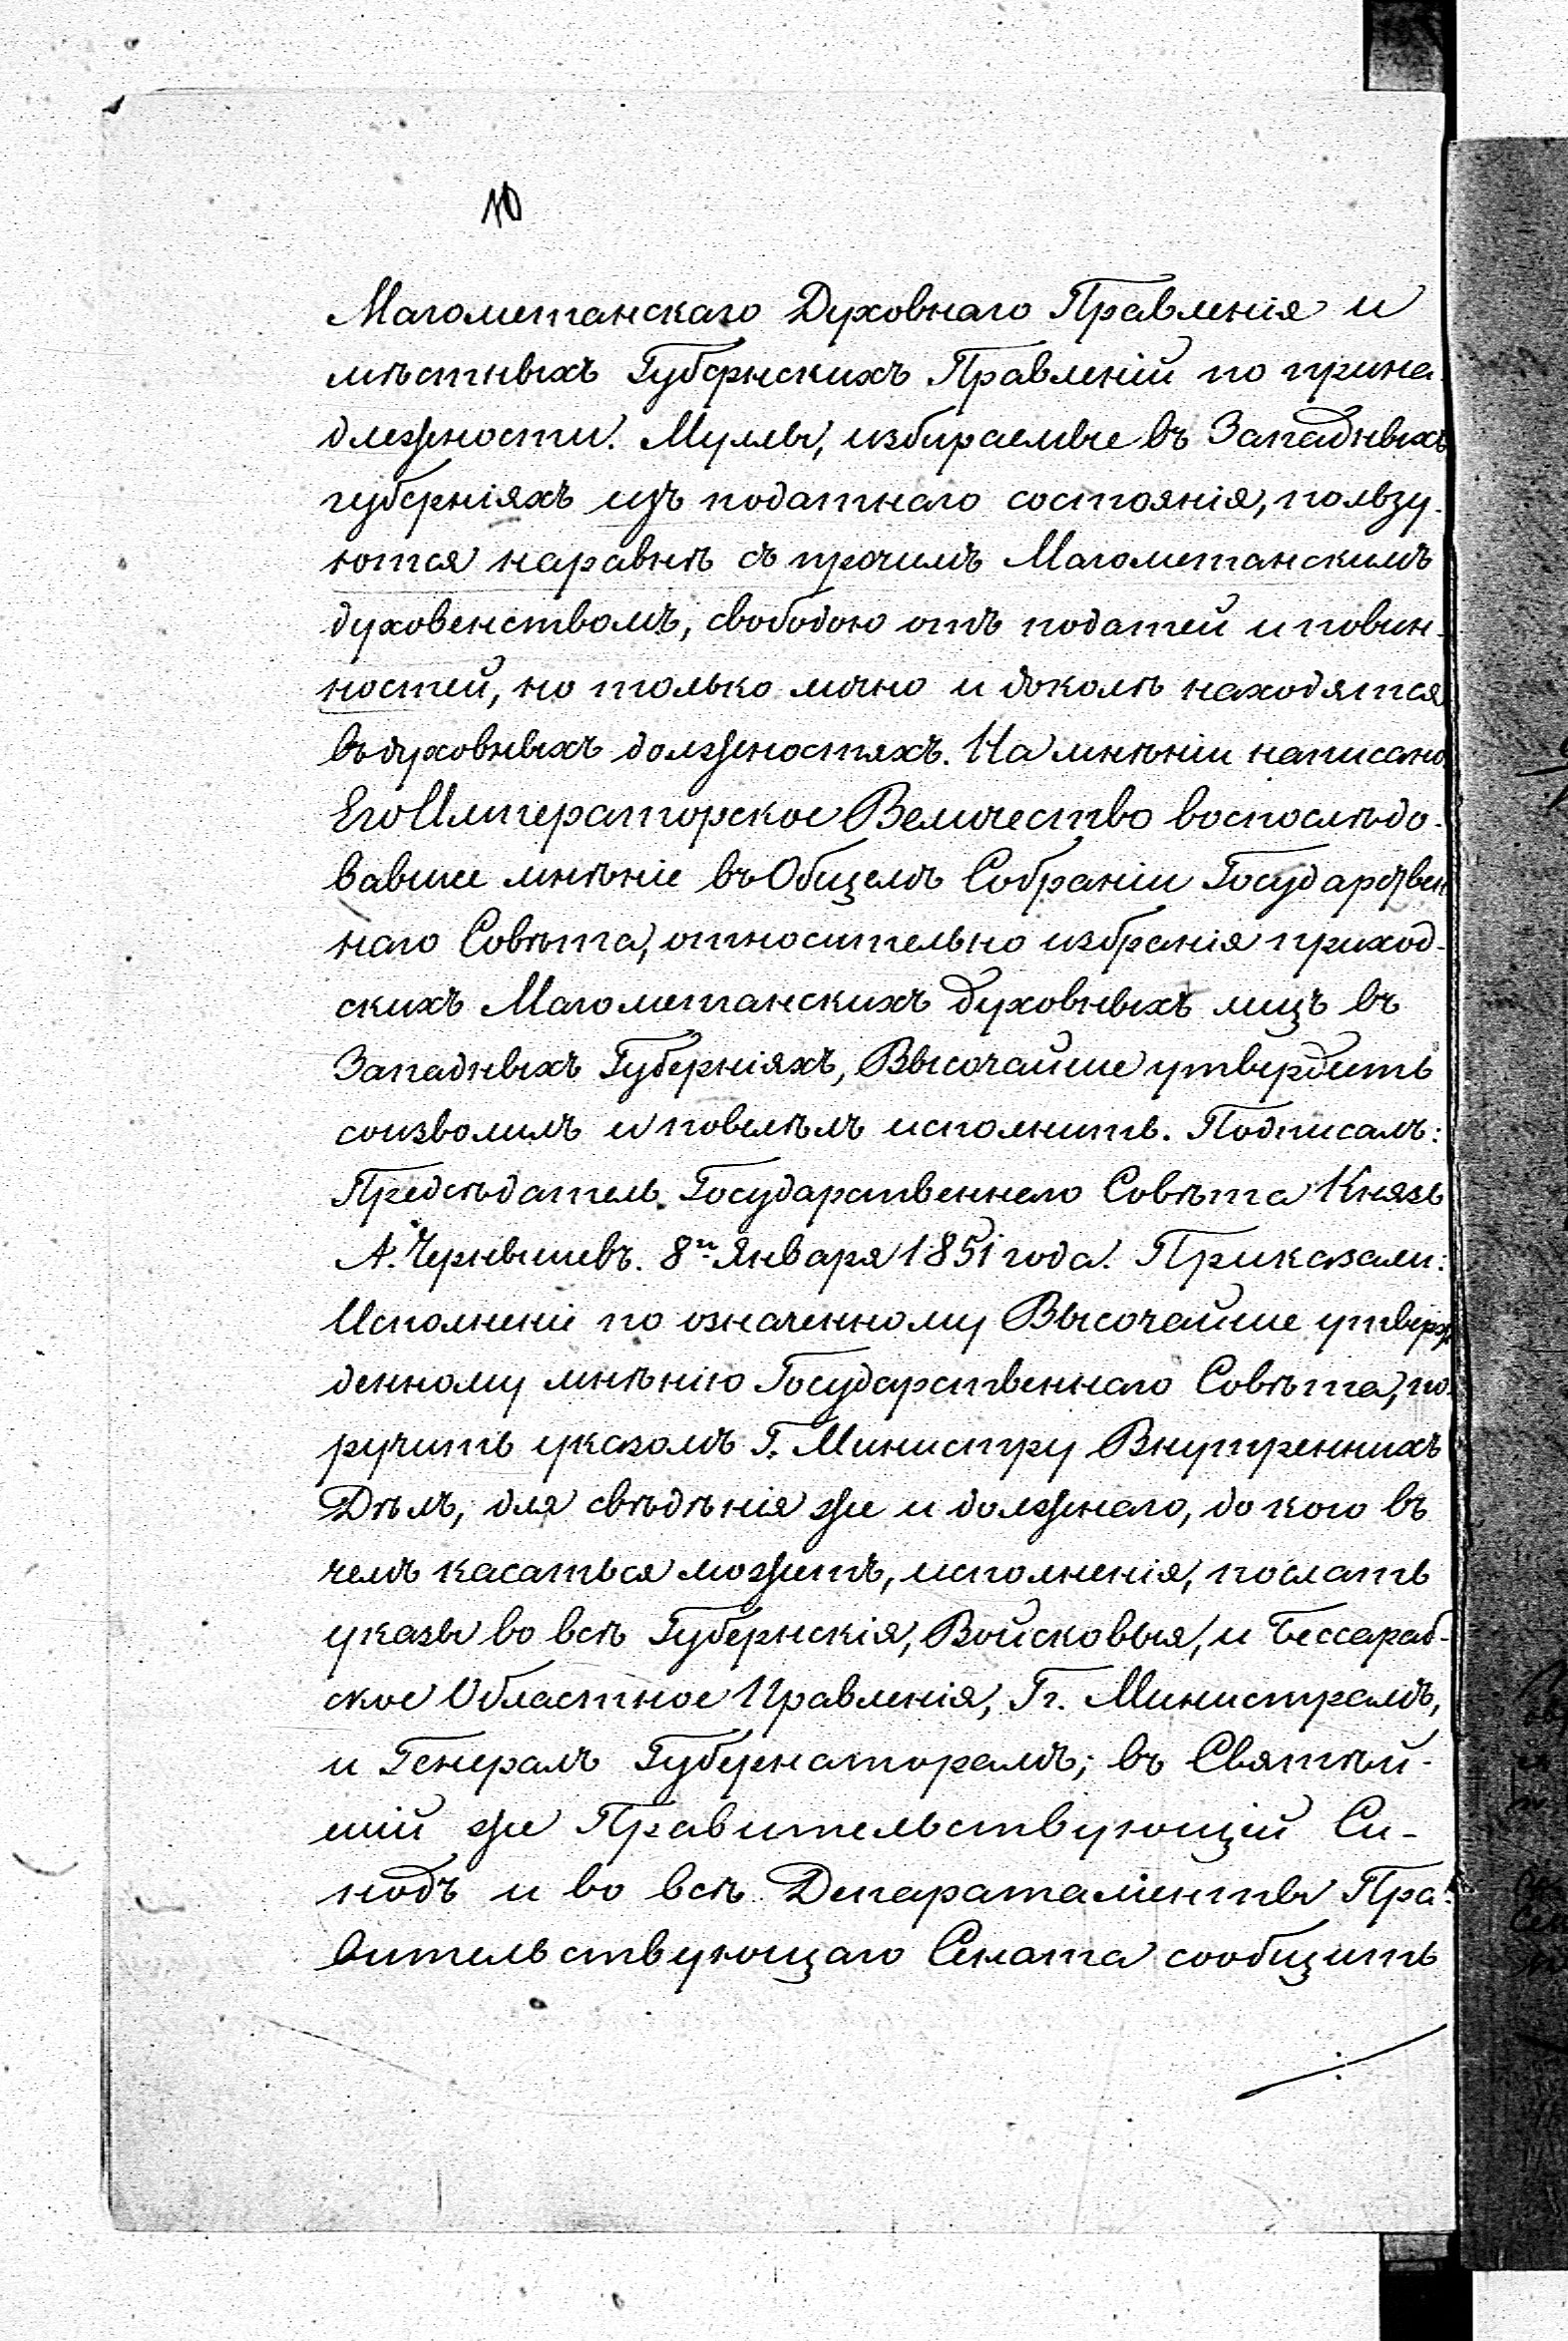 10
Магометанскаго Духовнаго Правленія и
мѣстныхъ Губернскихъ Правленій по прина-
длежности. Муллы, избираемые въ Западныхъ
губерніяхъ изъ податнаго состоянія, пользу-
ются наравнѣ съ прочимъ Магометанскимъ
духовенствомъ, свободою отъ податей и повин-
ностей, но только лично и доколѣ находятся
въ духовныхъ должностяхъ. На мнѣніи написано:
Его Императорское Величество воспослѣдо-
вавшее мнѣніе въ Общемъ Собраніи Государствен
наго Совѣта, относительно избранія приход-
скихъ Магометанскихъ духовныхъ лицъ въ
Западныхъ Губерніяхъ, Высочайше утвердить
соизволилъ и повелѣлъ исполнить. Подписалъ:
Предсѣдатель Государственнаго Совѣта Князь
А. Чернышевъ. 8го Января 1851 года. Приказали:
Исполненіе по означенному Высочайше утверж
денному мнѣнію Государственнаго Совѣта, по-
ручить указомъ Г. Министру Внутреннихъ
Дѣлъ, для свѣдѣнія же и должнаго, до кого въ
чемъ касаться можетъ, исполненія, послать
указы во всѣ Губернскія, Войсковыя, и Бессараб-
ское Областное Правленія, Гг. Министрамъ,
и Генералъ Губернаторамъ; въ Святѣй-
шій же Правительствующій Си-
нодъ и во всѣ Департаменты Пра-
вительствующаго Сената сообщить